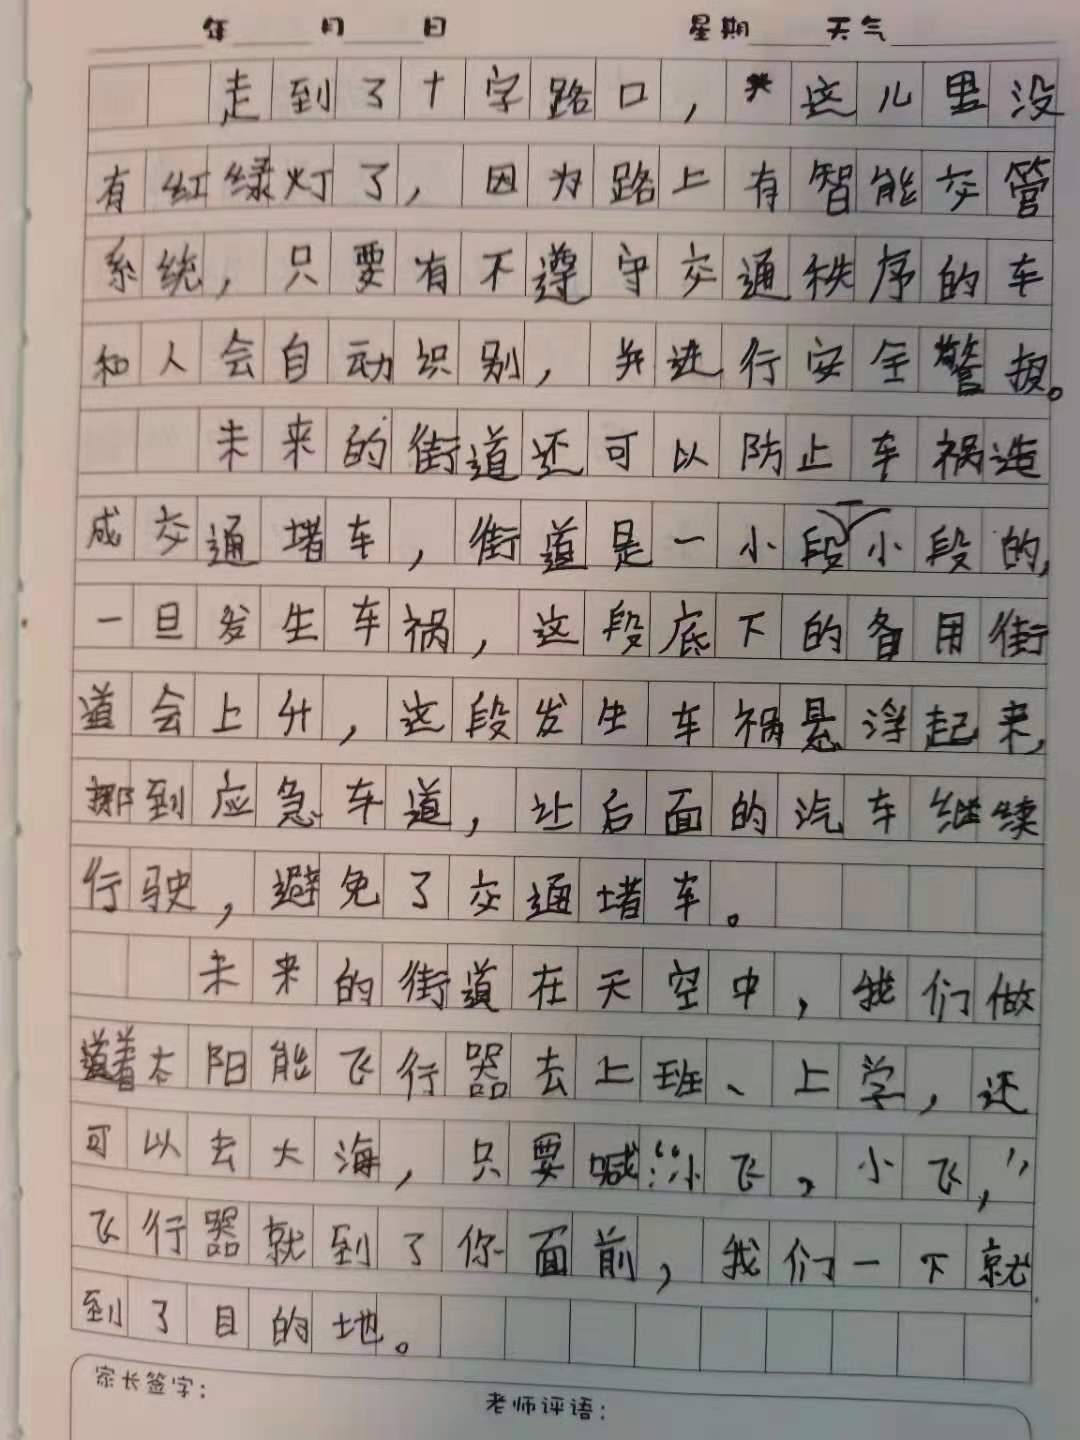 年 月 日 星期 天气
走到了十字路口，这儿里没
有红绿灯了，因为路上有智能交管
系统，只要有不遵守交通秩序的车
和人会自动识别，并进行安全警报。
未来的街道还可以防止车祸造
成交通堵车，街道是一小段一小段的，
一旦发生车祸，这段底下的备用街
道会上升，这段发生车祸悬浮起来，
挪到应急车道，让后面的汽车继续
行驶，避免了交通堵车。
未来的街道在天空中，我们做
着太阳能飞行器去上班、上学，还
可以去大海，只要喊：“小飞，小飞，”
飞行器就到了你面前，我们一下就
到了目的地。
家长签字：
老师评语：